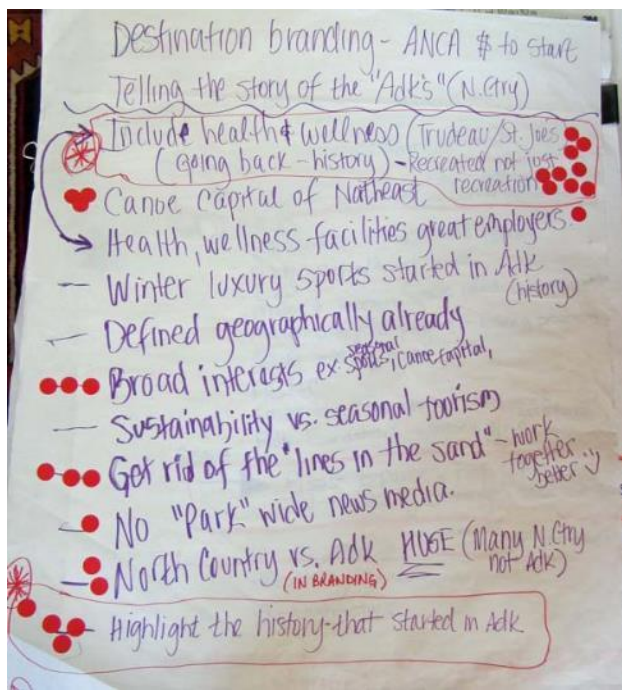 Destination branding - ANCA $ to start
Telling the story of the "Adk's" (N.Ctry)
Include health & wellness (Trudeau/St. Joes
(going back - history) - Recreated not just
recreation
Canoe Capital of Natheast
Health, wellness-facilities great employers.
Winter luxury sports started in Adk
(history)
Defined geographically already
Broad interests ex. seasonal sports, canoe capital,
Sustainability vs. seasonal tourism
Get rid of the "lines in the sand" - work
together
better :)
No "Park" wide news media.
North Country vs. Adk HUGE (Many N.Ctry
not Adk)
(IN BRANDING)
Highlight the history - that started in Adk